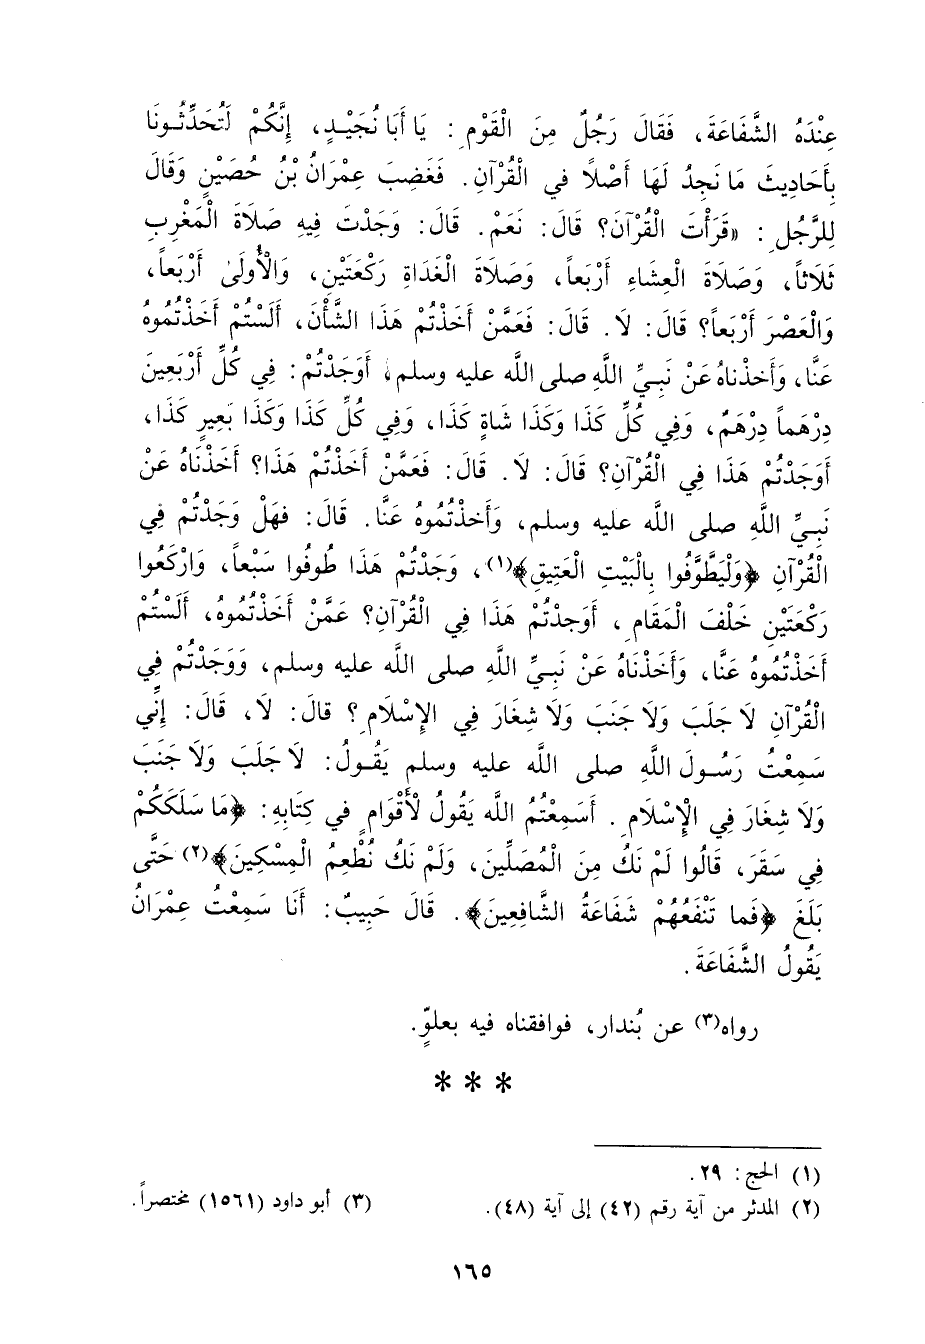 عِنْدَهُ الشَّفَاعَةَ، فَقَالَ رَجُلٌ مِنَ الْقَوْمِ: يَا أَبَا نُجَيْـدٍ، إِنَّكُمْ لَتُحَدِّثُـونَا
بِأَحَادِيثَ مَا نَجِدُ لَهَا أَصْلاً في الْقُرْآنِ. فَغَضِبَ عِمْرَانُ بْنُ حُصَيْنٍ وَقَالَ
لِلرَّجُلِ: «قَرَأْتَ الْقُرْآنَ؟ قَالَ: نَعَمْ. قَالَ: وَجَدْتَ فِيهِ صَلَاةَ الْمَغْرِبِ
ثَلَاثاً، وَصَلَاةَ الْعِشَاءِ أَرْبَعاً، وَصَلَاةَ الْغَدَاةِ رَكْعَتَيْنِ، وَالْأُولَىٰ أَرْبَعاً،
وَالْعَصْرَ أَرْبَعاً؟ قَالَ: لَا. قَالَ: فَعَمَّنْ أَخَذْتُمْ هَذَا الشَّأْنَ، أَلَسْتُمْ أَخَذْتُمُوهُ
عَنَّا، وَأَخذْناهُ عَنْ نَبِـيِّ اللَّهِ صلى الله عليه وسلم، أَوَجَدْتُمْ: فِي كُلِّ أَرْبَعِينَ
دِرْهَماً دِرْهَمٌ، وَفِي كُلِّ كَذَا وَكَذَا شَاةٍ كَذَا، وَفِي كُلِّ كَذَا وَكَذَا بَعِيرٍ كَذَا،
أَوَجَدْتُمْ هَذَا فِي الْقُرْآنِ؟ قَالَ: لَا. قَالَ: فَعَمَّنْ أَخَذْتُمْ هَذَا؟ أَخَذْنَاهُ عَنْ
نَبِـيِّ اللَّهِ صلى الله عليه وسلم، وَأَخَذْتُمُوهُ عَنَّا. قَالَ: فَهَلْ وَجَدْتُمْ فِي
الْقُرْآنِ ﴿وَلْيَطَّوَّفُوا بِالْبَيْتِ الْعَتِيقِ﴾(١)، وَجَدْتُمْ هَذَا طُوفُوا سَبْعاً، وَارْكَعُوا
رَكْعَتَيْنِ خَلْفَ الْمَقَامِ، أَوَجَدْتُمْ هَذَا فِي الْقُرْآنِ؟ عَمَّنْ أَخَذْتُمُوهُ، أَلَسْتُمْ
أَخَذْتُمُوهُ عَنَّا، وَأَخَذْنَاهُ عَنْ نَبِـيِّ اللَّهِ صلى الله عليه وسلم، وَوَجَدْتُمْ فِي
الْقُرْآنِ لَا جَلَبَ وَلَا جَنَبَ وَلَا شِغَارَ فِي الْإِسْلَامِ؟ قالَ: لَا، قَالَ: إِنِّي
سَمِعْتُ رَسُـولَ اللَّهِ صلى الله عليه وسلم يَقُـولُ: لَا جَلَبَ وَلَا جَنَبَ
وَلَا شِغَارَ فِي الْإِسْلَامِ. أَسَمِعْتُمُ اللَّه يَقُولُ لأَقْوَامٍ في كِتَابِهِ: ﴿مَا سَلَكَكُمْ
فِي سَقَرَ، قَالُوا لَمْ نَكُ مِنَ الْمُصَلِّينَ، وَلَمْ نَكُ نُطْعِمُ الْمِسْكِينَ﴾(٢) حَتَّى
بَلَغَ ﴿فَما تَنْفَعُهُمْ شَفَاعَةُ الشَّافِعِينَ﴾. قَالَ حَبِيبٌ: أَنَا سَمِعْتُ عِمْرَانُ
يَقُولُ الشَّفَاعَةَ.
رواه(٣) عن بُندار، فوافقناه فيه بعلوٍّ.
* * *
(١) الحج: ٢٩.
(٢) المدثر من آية رقم (٤٢) إلى آية (٤٨).
(٣) أبو داود (١٥٦١) مختصراً.
١٦٥